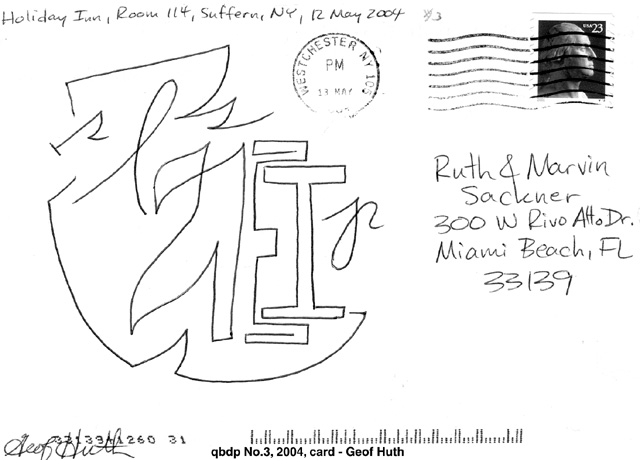 Holiday Inn, Room 114, Suffern, NY, 12 May 2004
WESTCHESTER NY 105
PM
13 MAY
USA 23
Ruth & Marvin
Sackner
300 W Rivo Alto Dr.
Miami Beach, FL
33139
Geof Huth
33139+1260 31
qbdp No.3, 2004, card - Geof Huth